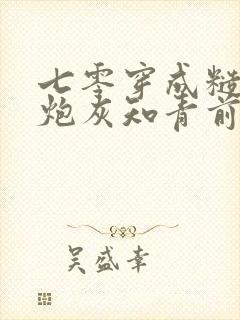 七零穿成糙
炮灰知青前
吴盛幸